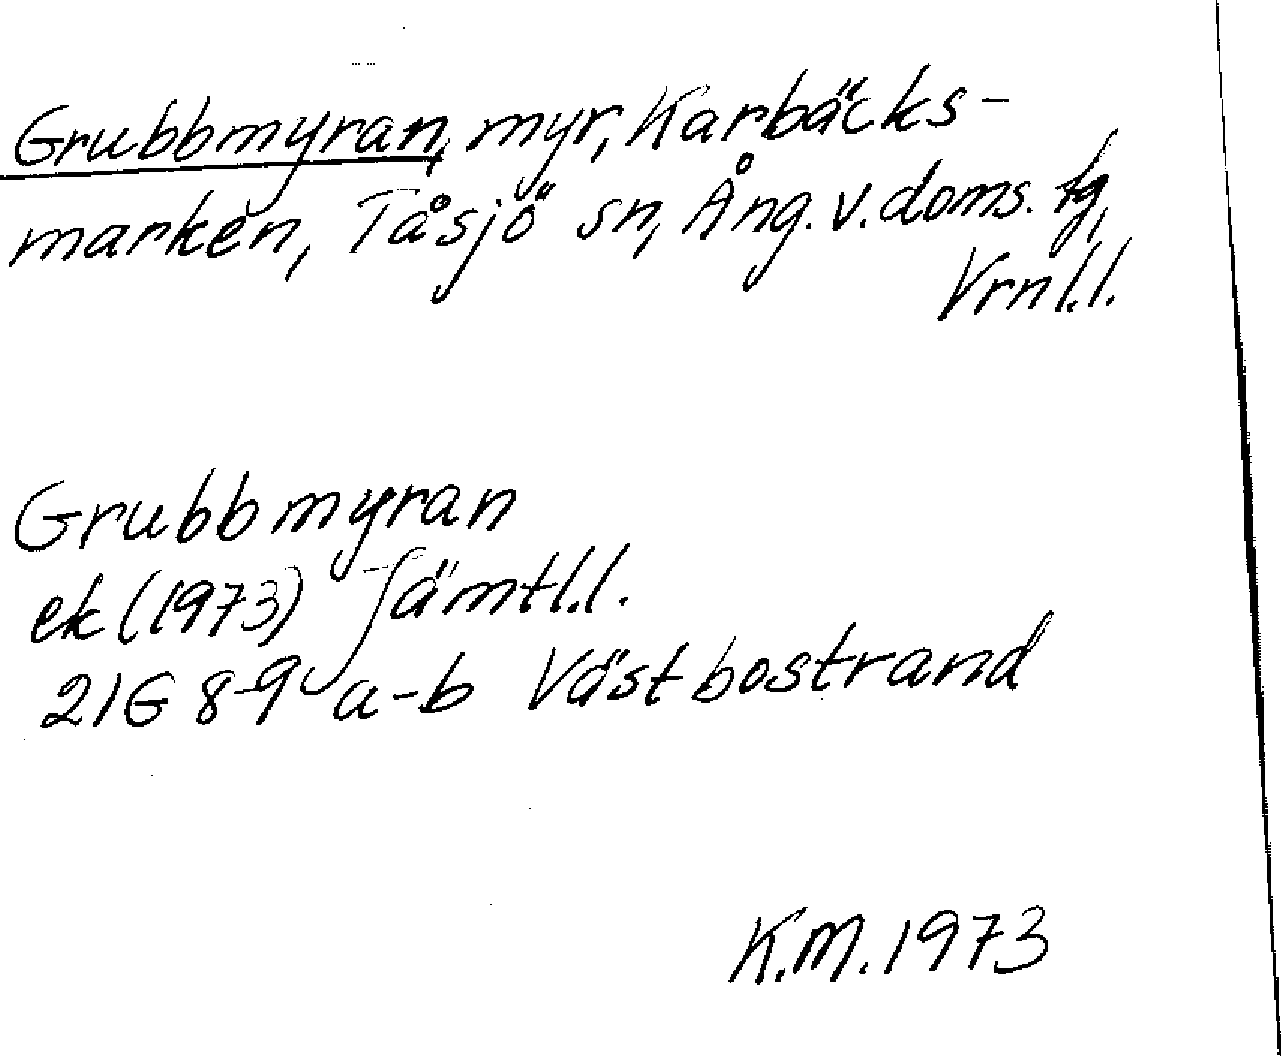 Grubbmyran, myr, Karbäcks-
marken, Tåsjö sn, Ång. v. doms. tg,
Vrnl.l.
Grubbmyran
ek (1973) Jämtl.l.
21G 8-9 a-b Västbostrand
K.M. 1973